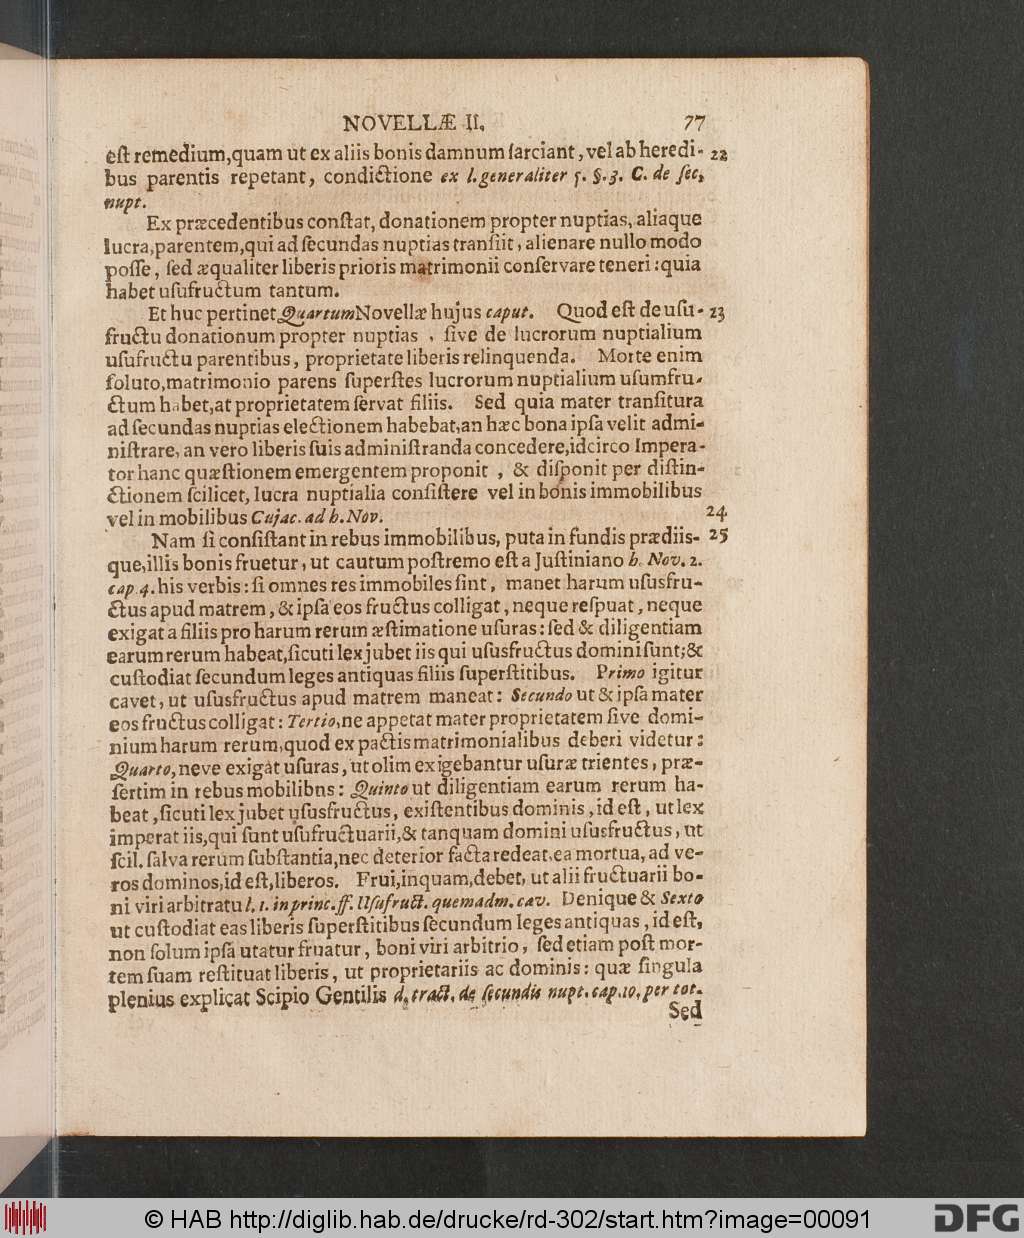 NOVELLÆ II. 77
eſt remedium, quam ut ex aliis bonis damnum ſarciant, vel ab heredi- 22
bus parentis repetant, condictione ex l. generaliter 5. §. 3. C. de ſec,
nupt.
Ex præcedentibus conſtat, donationem propter nuptias, aliaque
lucra, parentem, qui ad ſecundas nuptias tranſiit, alienare nullo modo
poſſe, ſed æqualiter liberis prioris matrimonii conſervare teneri: quia
habet uſufructum tantum.
Et huc pertinet Quartum Novellæ hujus caput. Quod eſt de uſu- 23
fructu donationum propter nuptias, ſive de lucrorum nuptialium
uſufructu parentibus, proprietate liberis relinquenda. Morte enim
ſoluto, matrimonio parens ſuperſtes lucrorum nuptialium uſumfru-
ctum habet, at proprietatem ſervat filiis. Sed quia mater tranſitura
ad ſecundas nuptias electionem habebat, an hæc bona ipſa velit admi-
niſtrare, an vero liberis ſuis adminiſtranda concedere, idcirco Impera-
tor hanc quæſtionem emergentem proponit, & diſponit per diſtin-
ctionem ſcilicet, lucra nuptialia conſiſtere vel in bonis immobilibus
vel in mobilibus Cujac. ad h. Nov. 24
Nam ſi conſiſtant in rebus immobilibus, puta in fundis prædiis- 25
que, illis bonis fruetur, ut cautum poſtremo eſt a Juſtiniano h. Nov. 2.
cap. 4. his verbis: ſi omnes res immobiles ſint, manet harum uſusfru-
ctus apud matrem, & ipſa eos fructus colligat, neque reſpuat, neque
exigat a filiis pro harum rerum æſtimatione uſuras: ſed & diligentiam
earum rerum habeat, ſicuti lex jubet iis qui uſusfructus domini ſunt; &
cuſtodiat ſecundum leges antiquas filiis ſuperſtitibus. Primo igitur
cavet, ut uſusfructus apud matrem maneat: Secundo ut & ipſa mater
eos fructus colligat: Tertio, ne appetat mater proprietatem ſive domi-
nium harum rerum, quod ex pactis matrimonialibus deberi videtur:
Quarto, neve exigat uſuras, ut olim exigebantur uſuræ trientes, præ-
ſertim in rebus mobilibns: Quinto ut diligentiam earum rerum ha-
beat, ſicuti lex jubet uſusfructus, exiſtentibus dominis, id eſt, ut lex
imperat iis, qui ſunt uſufructuarii, & tanquam domini uſusfructus, ut
ſcil. ſalva rerum ſubſtantia, nec deterior facta redeat, ea mortua, ad ve-
ros dominos, id eſt, liberos. Frui, inquam, debet, ut alii fructuarii bo-
ni viri arbitratu l. 1. in princ. ff. Uſufruct. quemadm. cav. Denique & Sexto
ut cuſtodiat eas liberis ſuperſtitibus ſecundum leges antiquas, id eſt,
non ſolum ipſa utatur fruatur, boni viri arbitrio, ſed etiam poſt mor-
tem ſuam reſtituat liberis, ut proprietariis ac dominis: quæ ſingula
plenius explicat Scipio Gentilis d. tract. de ſecundis nupt. cap. 10. per tot.
Sed
© HAB http://diglib.hab.de/drucke/rd-302/start.htm?image=00091 DFG